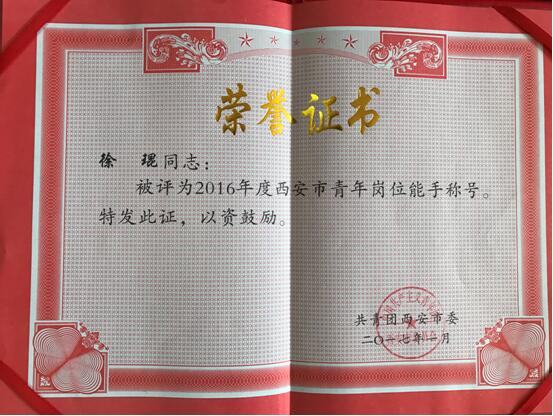 荣誉证书
徐 琨同志：
被评为2016年度西安市青年岗位能手称号。
特发此证，以资鼓励。
共青团西安市委
二〇一七年二月